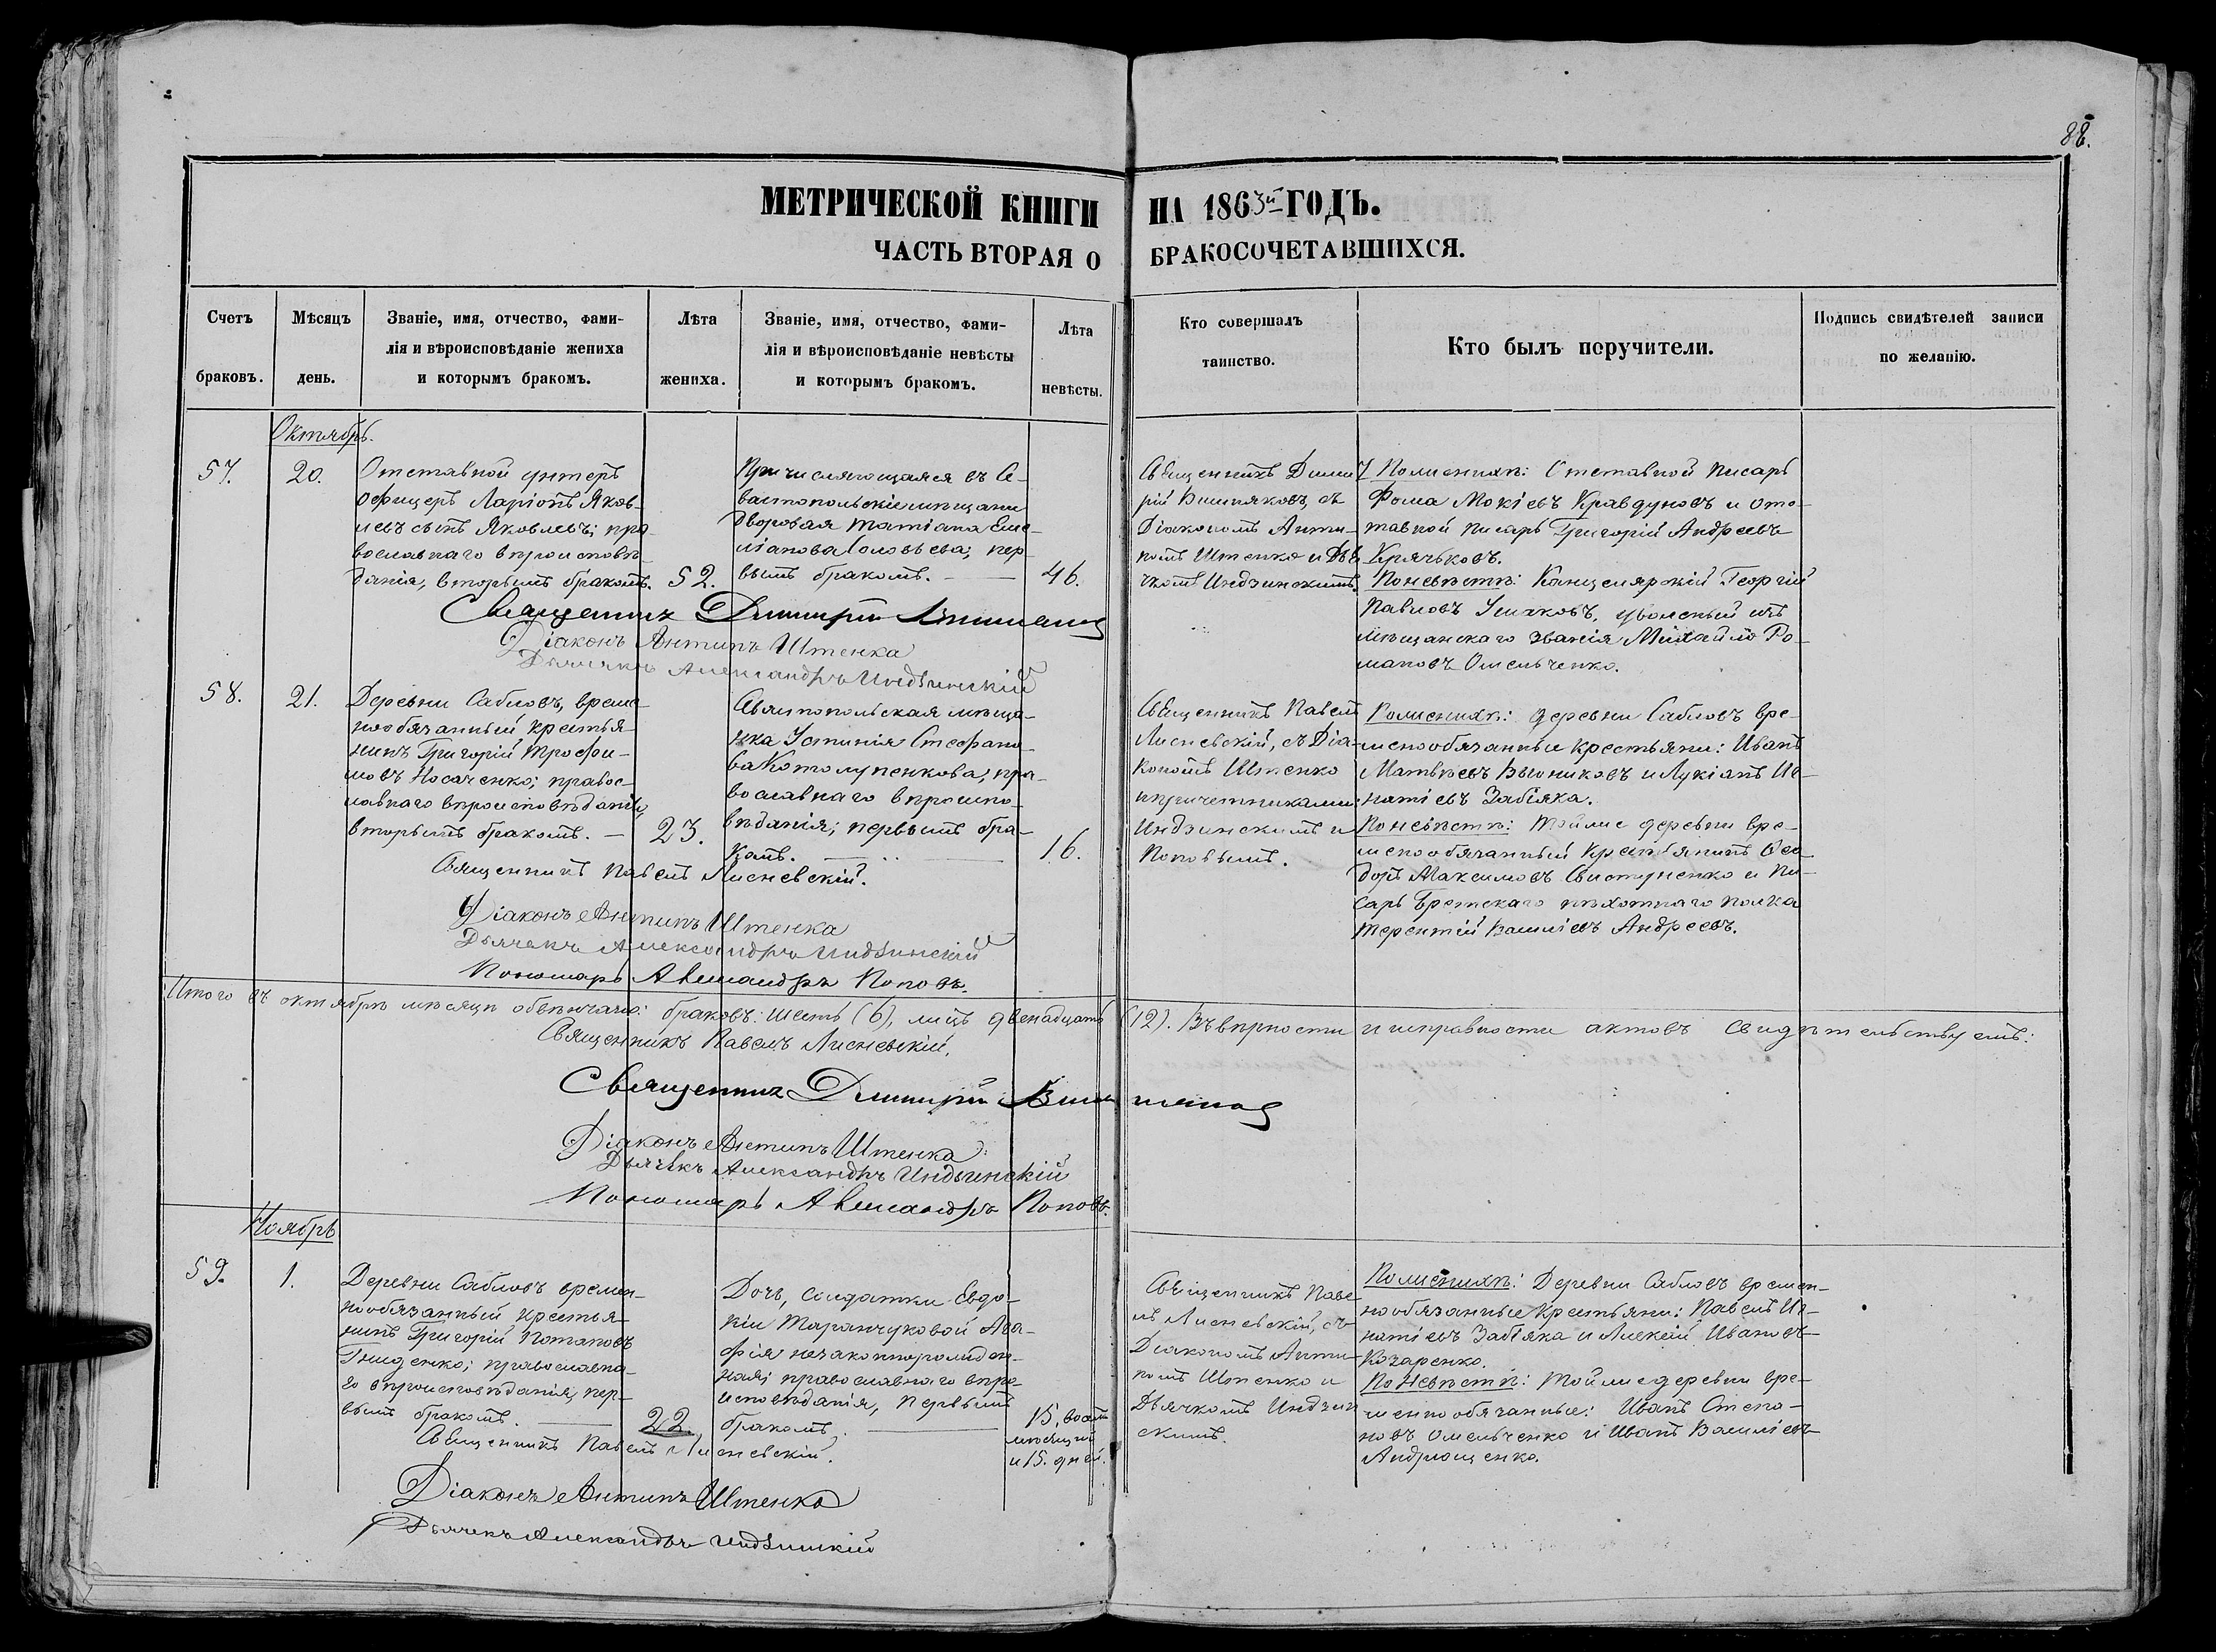 88.
МЕТРИЧЕСКОЙ КНИГИ НА 1863й ГОДЪ.
ЧАСТЬ ВТОРАЯ О БРАКОСОЧЕТАВШИХСЯ.
Счетъ
браковъ.
Мѣсяцъ
день.
Званіе, имя, отчество, фами-
лія и вѣроисповѣданіе жениха
и которымъ бракомъ.
Лѣта
жениха.
Званіе, имя, отчество, фами-
лія и вѣроисповѣданіе невѣсты
и которымъ бракомъ.
Лѣта
невѣсты.
Кто совершалъ
таинство.
Кто былъ поручители.
Подпись свидѣтелей записи
по желанію.
Октябрь.
57.
20.
Отставной унтеръ
офицеръ Ларіонъ Яков-
левъ сынъ Яковлевъ; пра-
вославнаго вѣроисповѣ-
данія, вторымъ бракомъ.
52.
Причисляющаяся въ Се-
вастопольскіе мѣщане
дворовая Татіана Еме-
ліанова Соловьева, пер-
вымъ бракомъ.
46.
Священникъ Димит
рій Вишняковъ, съ
Діакономъ Анти-
помъ Штенко и Дья
чкомъ Индзинскимъ.
По женихѣ: Отставной писарь
Фома Мокіевъ Кравдуновъ и отс-
тавной писарь Григорій Андреевъ
Крячковъ.
По невѣстѣ: Канцелярскій Георгій
Павловъ Ушаковъ, уволеный изъ
мѣщанскаго званія Михайло Ро-
мановъ Омельченко.
Священникъ Димитрій Вишняковъ
Діаконъ Антипъ Штенка
Дьячекъ Александръ Индзинскій
58.
21.
Деревни Сабловъ, време-
нообязанный крестья-
нинъ Григорій Трофи-
мовъ Носаченко; правос-
лавнаго вѣроисповѣданія,
вторымъ бракомъ.
23.
Севастопольская мѣща-
нка Устинія Стефано-
ва Котолупенкова; пра-
вославнаго вѣроиспо-
вѣданія; первымъ бра-
комъ.
16.
Священникъ Павелъ
Лисневскій, съ Діа-
кономъ Штенко
и причетниками:
Индзинскимъ и
Поповымъ.
По женихѣ: деревни Сабловъ вре-
менообязанные крестьяни: Иванъ
Матвѣевъ Вьюниковъ и Лукіанъ Иг-
натіевъ Забіяка.
По невѣстѣ: Тойже деревни вре-
менообязанный крестьянинъ Фео-
доръ Максимовъ Свистуненко и Пи-
сарь Брестскаго пѣхотнаго полка
Терентій Василіевъ Андреевъ.
Священникъ Павелъ Лисневскій.
Діаконъ Антипъ Штенка
Дьячекъ Александръ Индзинскій
Пономарь Александръ Поповъ.
Итого въ октябрѣ мѣсяцѣ обвѣнчано: браковъ: шесть (6), лицъ двенадцать (12). Въ вѣрности и исправности актовъ свидѣтельствуемъ:
Священникъ Павелъ Лисневскій.
Священникъ Димитрій Вишняковъ
Діаконъ Антипъ Штенка
Дьячекъ Александръ Индзинскій
Пономарь Александръ Поповъ.
Ноябрь
59.
1.
Деревни Сабловъ времен-
нообязанный крестья-
нинъ Григорій Потаповъ
Гниденко; православна-
го вѣроисповѣданія, пер-
вымъ бракомъ.
22.
Дочь, солдатки Евдо-
кіи Таранчуковой Ага-
фія незаконнорожден-
ная; православнаго вѣро-
исповѣданія, первымъ
бракомъ.
15, восемь
мѣсяцевъ
и 15. дней.
Священникъ Паве
лъ Лисневскій, съ
Діакономъ Анти-
помъ Штенко и
Дьячкомъ Индзин
скимъ.
По женихѣ: Деревни Сабловъ времен-
нообязанные крестьяни: Павелъ Иг-
натіевъ Забіяка и Алексій Ивановъ
Козаренко.
По невѣстѣ: Тойже деревни вре-
менно обязанные: Иванъ Степа-
новъ Омельченко и Иванъ Василіевъ
Андрющенко.
Священникъ Павелъ Лисневскій.
Діаконъ Антипъ Штенка
Дьячекъ Александръ Индзинскій